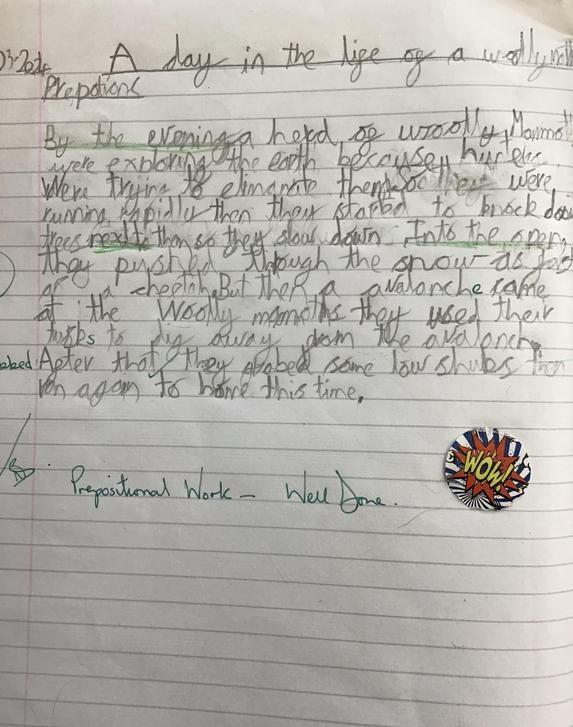 A day in the life of a woolly
Prepotions
By the evening a herd of woolly Mammot
were exploring the earth because hunters
Were trying to elimanate them so they were
running rapidly then they started to knock down
trees next to them so they slow down. Into the open,
they pushed through the snow as fast
as a cheetah. But then a avalanche came
at the Woolly mamoths they used their
tusks to dig away from the avalanche
After that they some low shubs then
ran again to home this time,
Prepositional Work - Well Done.
WOW!